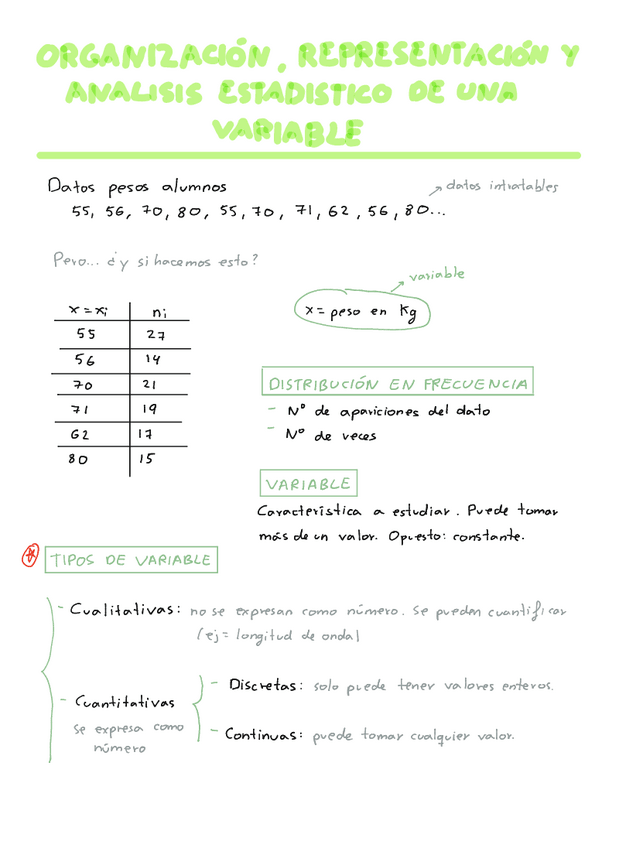 ORGANIZACIÓN, REPRESENTACIÓN Y
ANALISIS ESTADISTICO DE UNA
VARIABLE
Datos pesos alumnos
datos intratables
55, 56, 70, 80, 55, 70, 71, 62, 56, 80...
Pero... ¿y si hacemos esto?
variable
x = xi ni
x = peso en Kg
55 27
56 14
70 21
71 19
62 17
80 15
DISTRIBUCIÓN EN FRECUENCIA
- Nº de apariciones del dato
- Nº de veces
VARIABLE
Característica a estudiar. Puede tomar
más de un valor. Opuesto: constante.
TIPOS DE VARIABLE
- Cualitativas: no se expresan como número. Se pueden cuantificar
(ej = longitud de onda)
- Cuantitativas
se expresa como
número
- Discretas: solo puede tener valores enteros.
- Continuas: puede tomar cualquier valor.